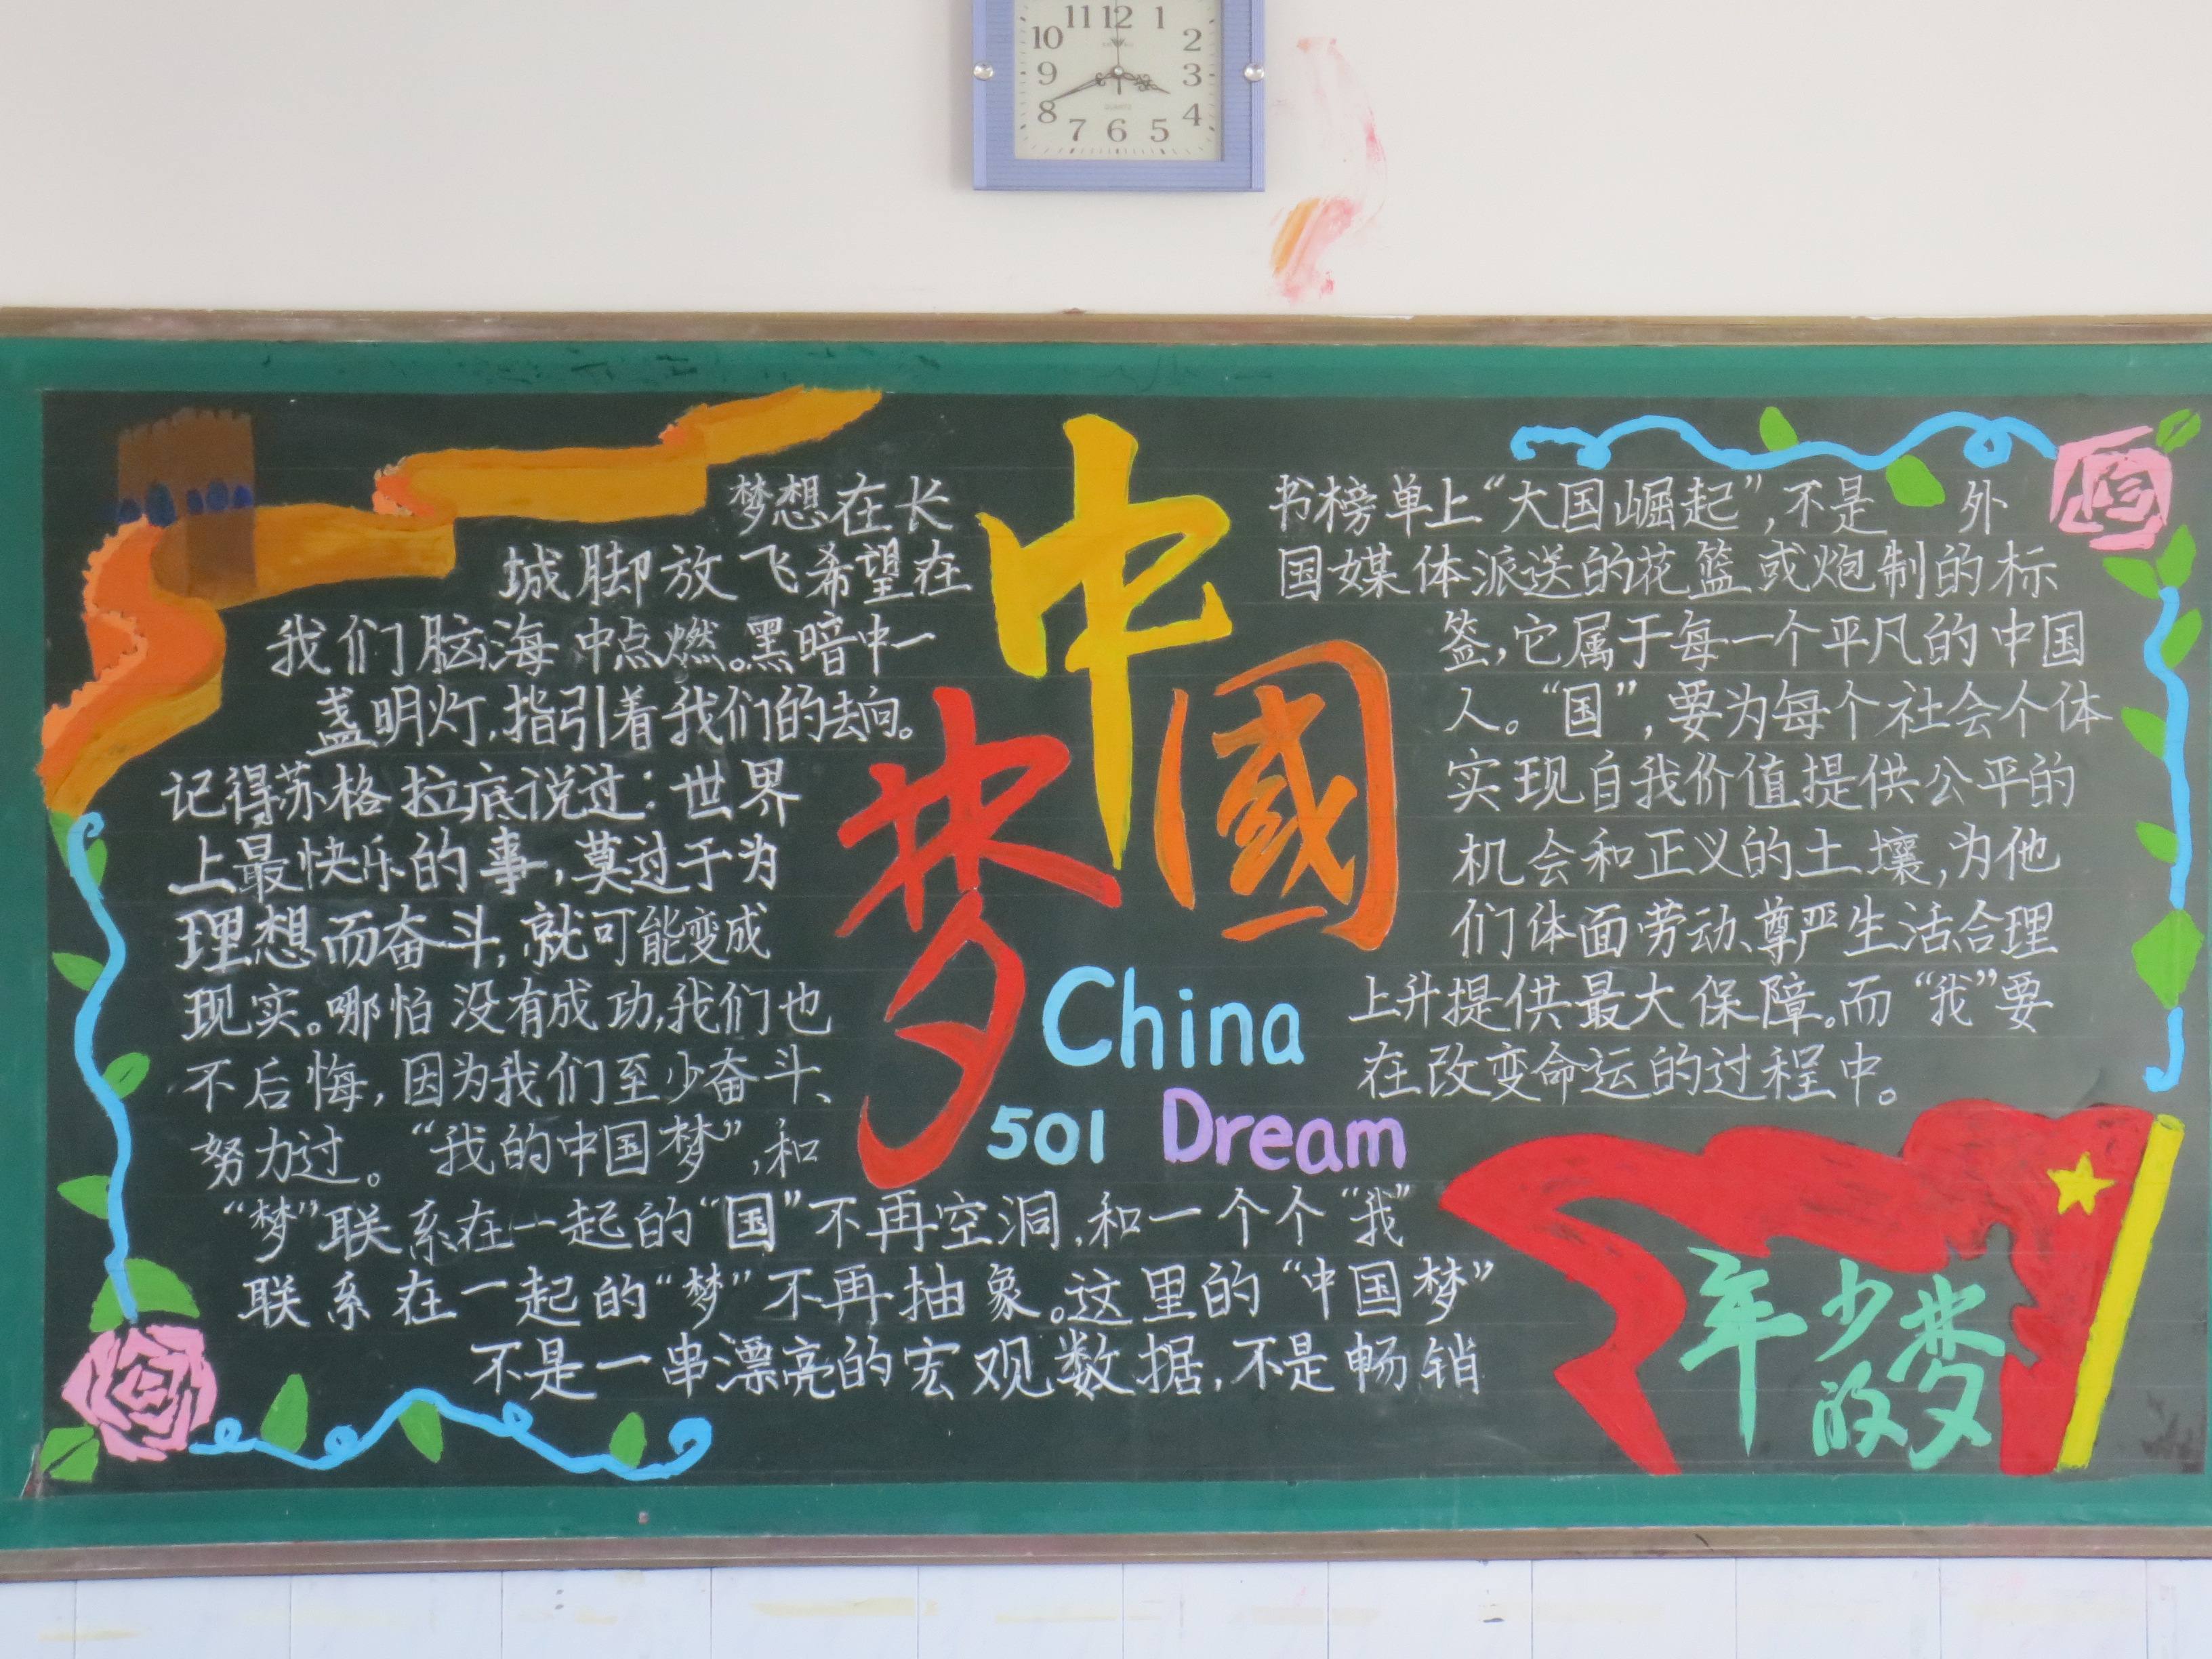 11 12 1
10 2
9 3
8 4
7 6 5
QUARTZ
梦想在长
城脚放飞希望在
我们脑海中点燃。黑暗中一
盏明灯,指引着我们的去向。
记得苏格拉底说过:世界
上最快乐的事,莫过于为
理想而奋斗,就可能变成
现实。哪怕没有成功,我们也
不后悔,因为我们至少奋斗、
努力过。“我的中国梦”,和
“梦”联系在一起的“国”不再空洞,和一个个“我”
联系在一起的“梦”不再抽象。这里的“中国梦”
不是一串漂亮的宏观数据,不是畅销
中國
梦
China
501 Dream
书榜单上“大国崛起”,不是 外
国媒体派送的花篮或炮制的标
签,它属于每一个平凡的中国
人。“国”,要为每个社会个体
实现自我价值提供公平的
机会和正义的土壤,为他
们体面劳动、尊严生活、合理
上升提供最大保障。而“我”要
在改变命运的过程中。
年少
的梦